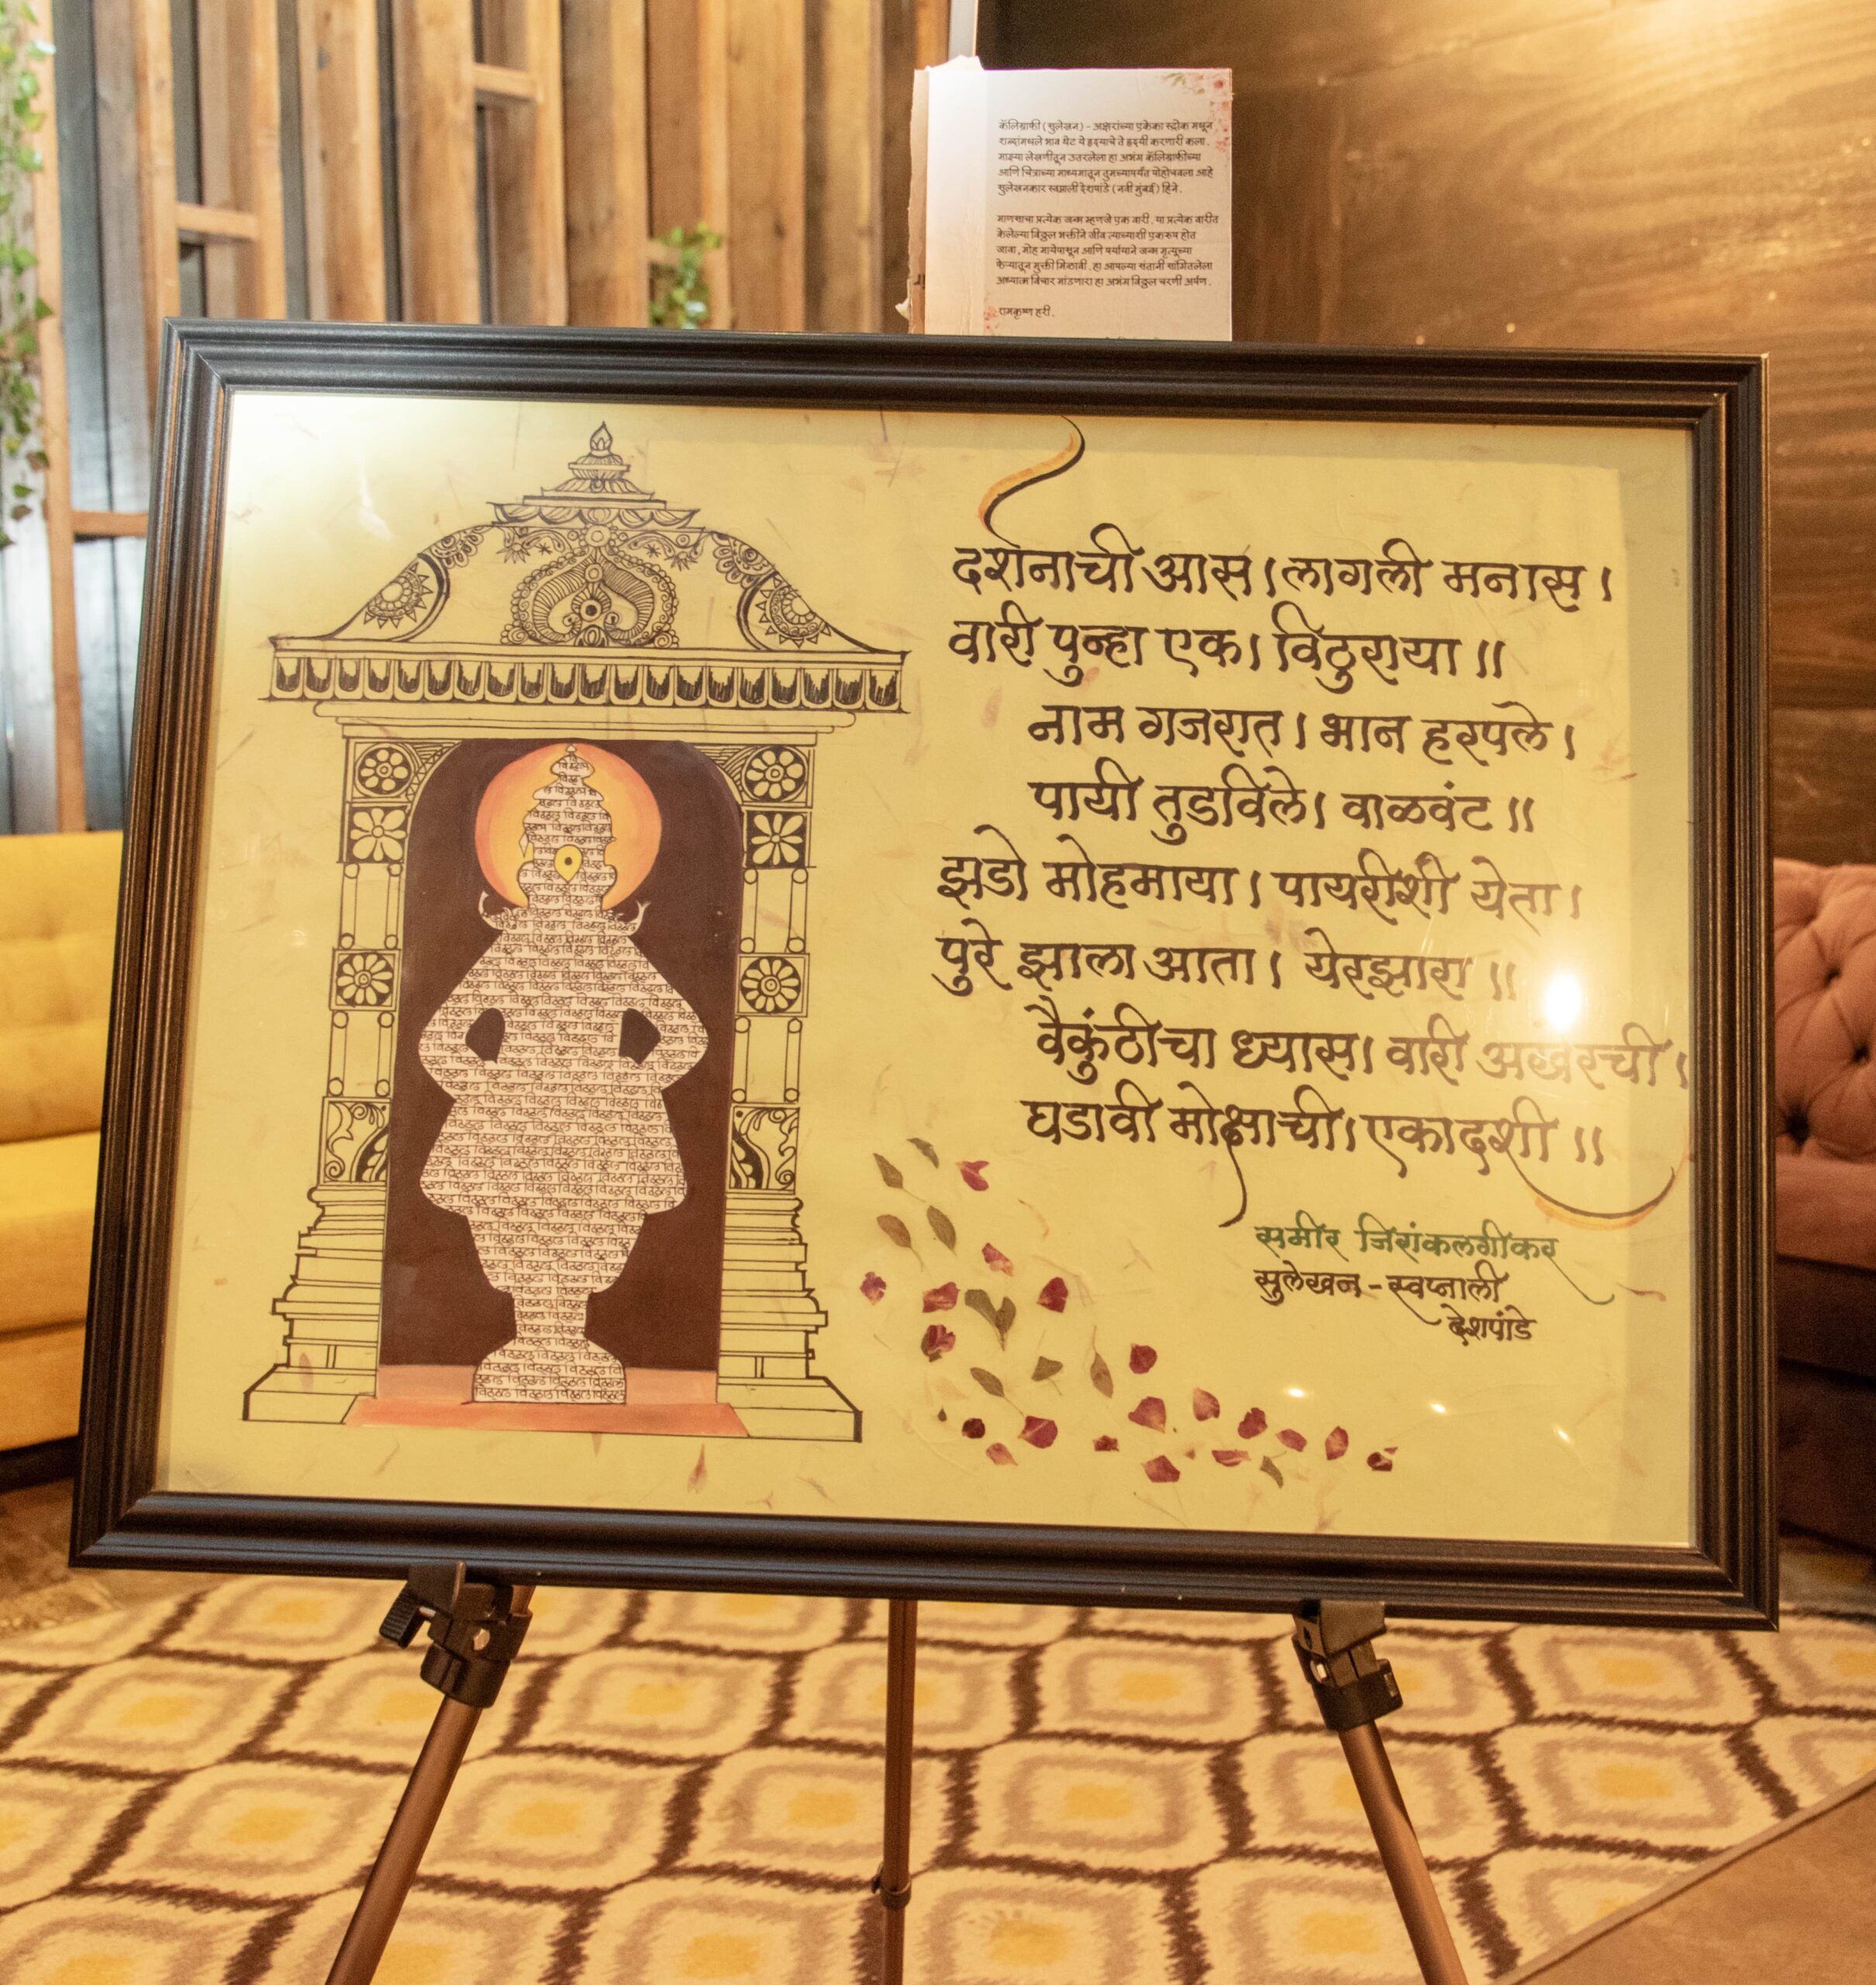 कॅलिग्राफी (सुलेखन) - अक्षरांच्या एकेका स्ट्रोक मधून
शब्दांमधले भाव थेट ये हृदयाचे ते हृदयी करणारी कला.
माझ्या लेखणीतून उतरलेला हा अभंग कॅलिग्राफीच्या
आणि चित्राच्या माध्यमातून तुमच्यापर्यंत पोहोचवला आहे
सुलेखनकार स्वप्नाली देशपांडे (नवी मुंबई) हिने.
माणसाचा प्रत्येक जन्म म्हणजे एक वारी. या प्रत्येक वारीत
केलेल्या विठ्ठल भक्तीने जीव त्याच्याशी एकरुप होत
जावा, मोह मायेपासून आणि पर्यायाने जन्म मृत्यूच्या
फेऱ्यातून मुक्ती मिळावी, हा आपल्या संतानी सांगितलेला
अध्यात्म विचार मांडणारा हा अभंग विठ्ठल चरणी अर्पण.
रामकृष्ण हरी.
दर्शनाची आस। लागली मनास।
वारी पुन्हा एक। विठुराया॥
नाम गजरात। भान हरपले।
पायी तुडविले। वाळवंट॥
झडो मोहमाया। पायरीशी येता।
पुरे झाला आता। येरझारा॥
वैकुंठीचा ध्यास। वारी अखेरची।
घडावी मोक्षाची। एकादशी॥
समीर जिरांकलगीकर
सुलेखन - स्वप्नाली
देशपांडे